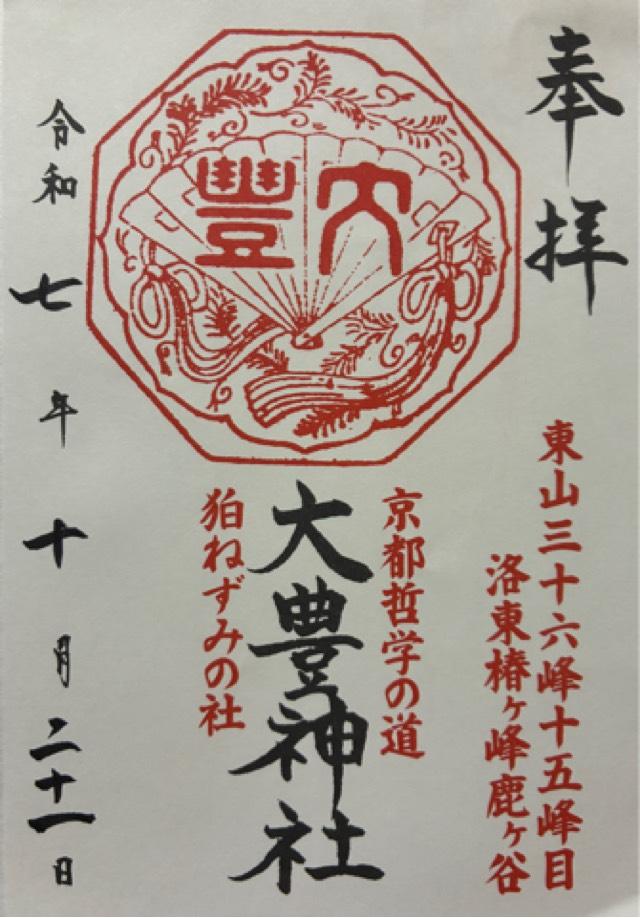 奉拝
東山三十六峰十五峰目
洛東椿ヶ峰鹿ヶ谷
大豊
京都哲学の道
大豊神社
狛ねずみの社
令和七年十月二十一日